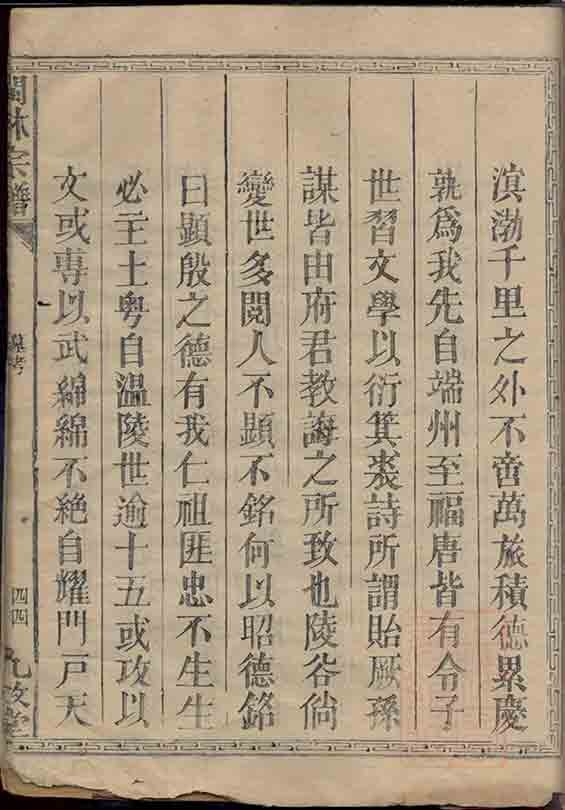 滇渤千里之外不啻萬旅積德累慶
孰爲我先自端州至福唐皆有令子
世習文學以衍箕裘詩所謂貽厥孫
謀皆由府君教誨之所致也陵谷倘
變世多閱人不顯不銘何以昭德銘
曰顯殷之德有我仁祖匪忠不生生
必王土粤自溫陵世逾十五或攻以
文或専以武綿綿不絶自耀門戸天
林宗譜
墓考
四四
九牧堂